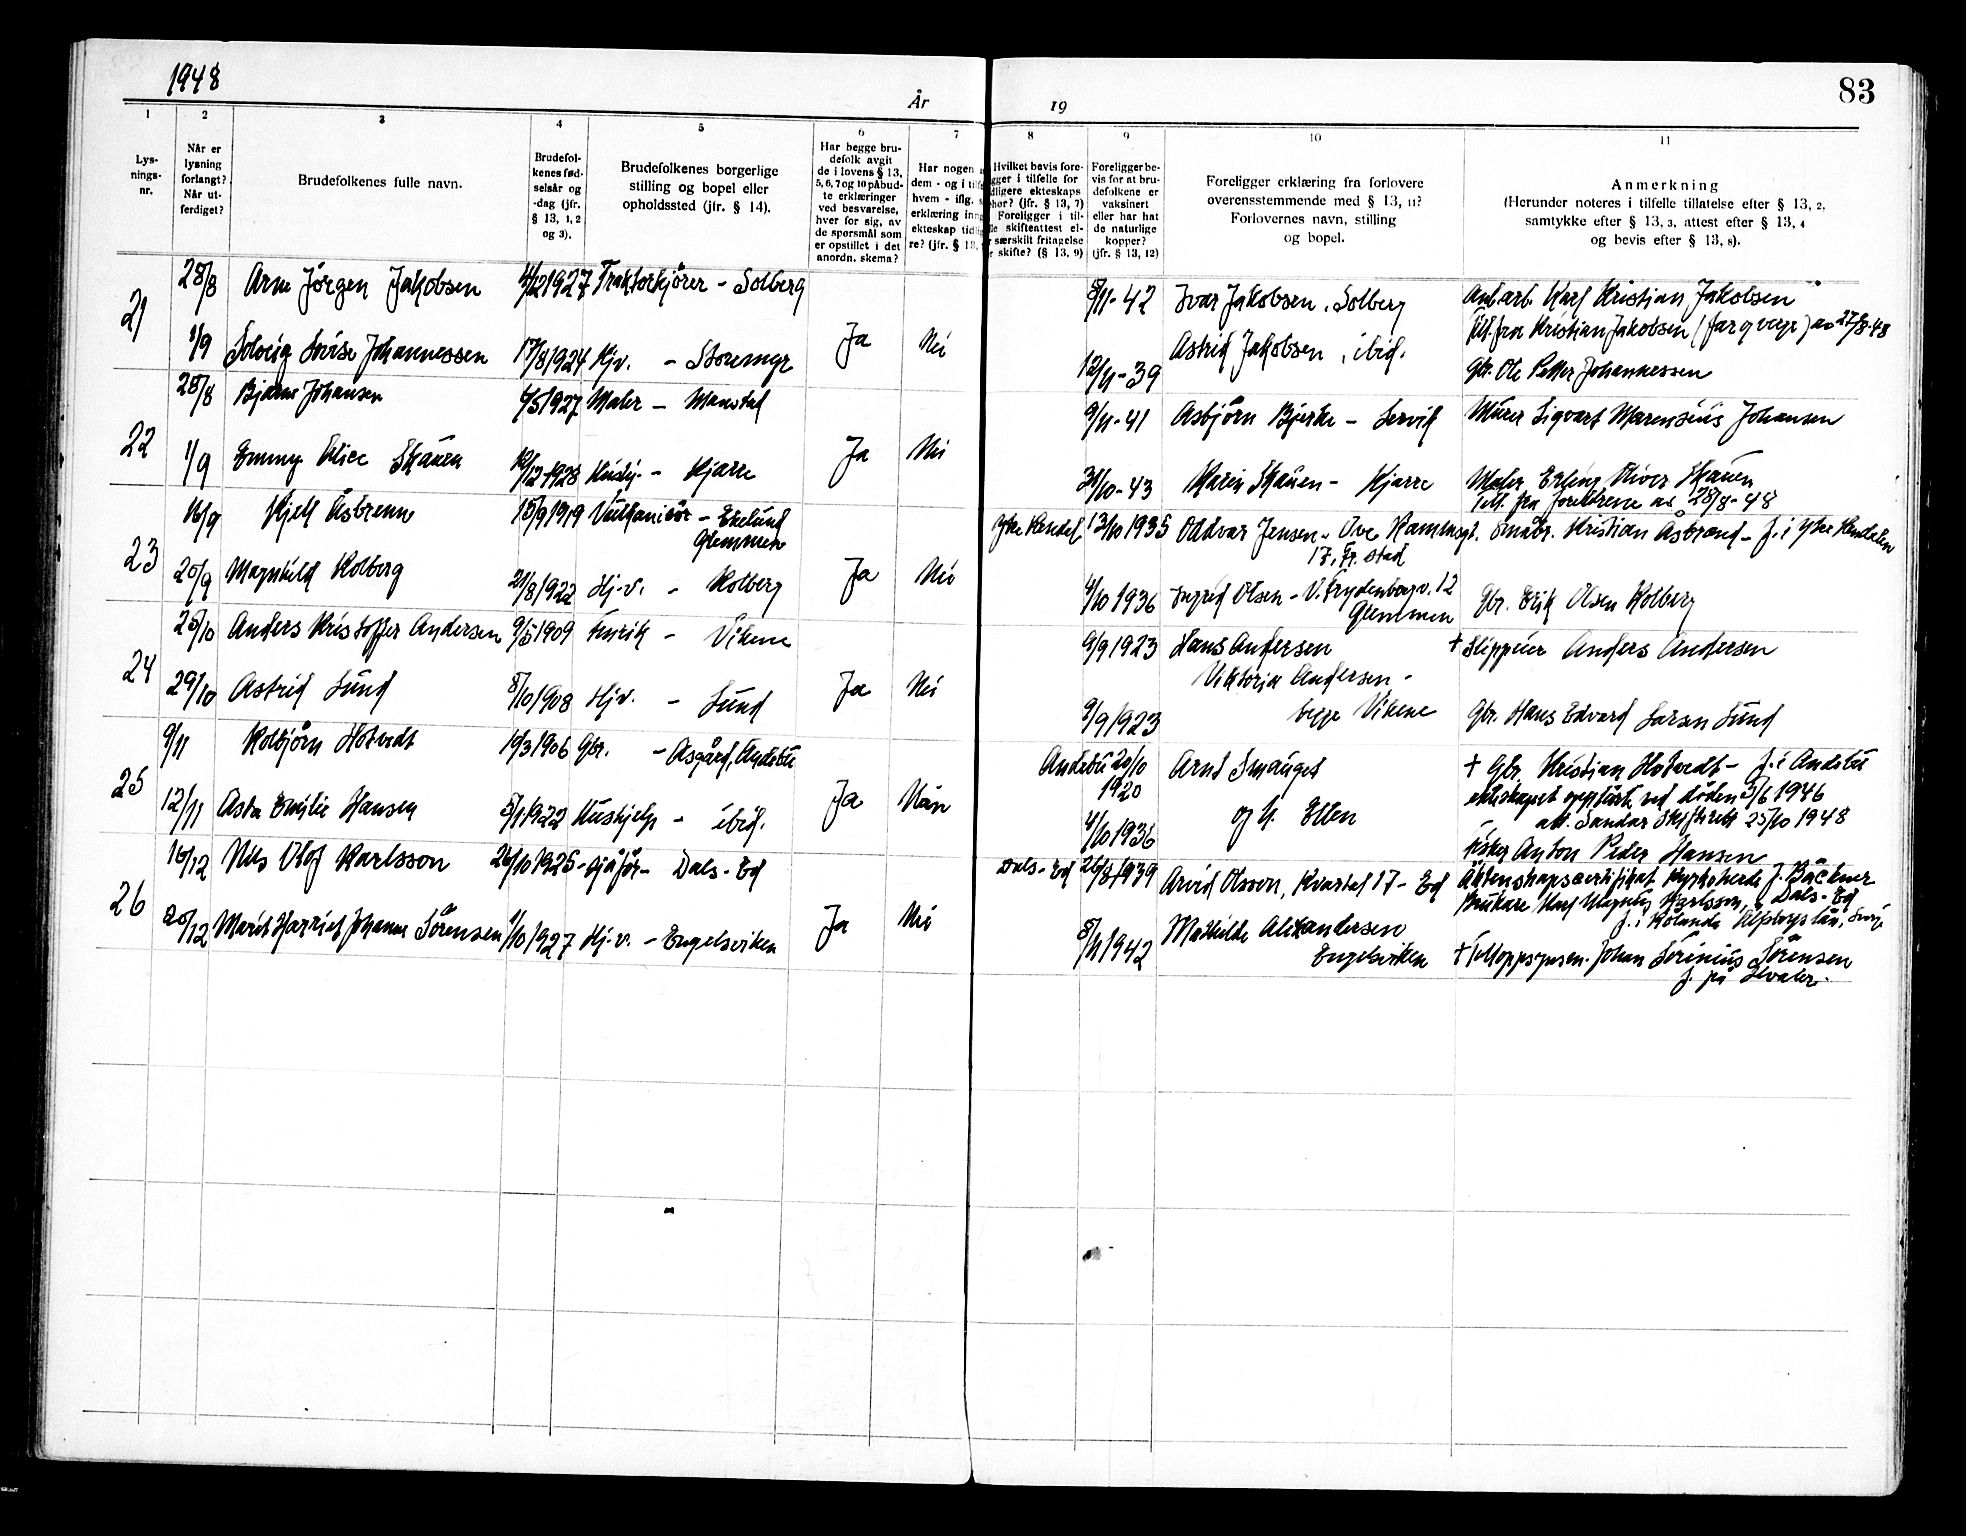 1948
83
År
19
1
2
3
4
5
6
7
8
9
10
11
Lys-
nings-
nr.
Når er
lysning
forlangt?
Når ut-
ferdiget?
Brudefolkenes fulle navn.
Brudefol-
kenes fød-
selsår og
-dag (jfr.
§ 13, 1, 2
og 3).
Brudefolkenes borgerlige
stilling og bopel eller
opholdssted (jfr. § 14).
Har begge bru-
defolk avgit
de i lovens § 13,
5, 6, 7 og 10 påbud-
te erklæringer
ved besvarelse,
hver for sig, av
de spørsmål som
er opstillet i det
anordn. skema?
Har nogen
dem - og i
hvem - iflg.
erklæring
ekteskap
re? (jfr. § 13,
Hvilket bevis fore-
gger i tilfelle for
dligere ekteskaps
hør? (jfr. § 13, 7)
Foreligger i til-
le skifteattest el-
r særskilt fritagelse
r skifte? (§ 13, 9)
Foreligger be-
vis for at bru-
defolkene er
vaksinert
eller har hat
de naturlige
kopper?
(jfr. § 13, 12)
Foreligger erklæring fra forlovere
overensstemmende med § 13, 11?
Forlovernes navn, stilling
og bopel.
Anmerkning
(Herunder noteres i tilfelle tillatelse efter § 13, 2,
samtykke efter § 13, 3, attest efter § 13, 4
og bevis efter § 13, 8).
21
28/8 Arne Jørgen Jakobsen 4/12 1927 Traktorkjörer - Solberg
8/11-42 Ivar Jakobsen, Solberg Anl.arb. Karl Kristian Jakobsen
Till. fra Kristian Jakobsen (far q verge) av 27/8-48
1/9 Solveig Lovise Johannessen 17/8 1924 Hjv. - Storemyr Ja Nei
12/11-39 Astrid Jakobsen, ibid. Gbr. Ole Petter Johannessen
22
28/8 Bjarne Johansen 4/5 1927 Maler - Manstad
9/11-41 Asbjörn Bjerke - Lervik Murer Sigvart Marensius Johansen
1/9 Emmy Alice Skauen 12/12 1928 Hushj. - Kjærre Ja Nei
31/10-43 Karin Skauen - Kjærre Maler Erling Oliver Skauen
Till. fra foreldrene av 28/8-48
23
16/9 Kjell Åsbrenn 15/9 1919 Vulkanisör - Ekelund
Glemmen
13/10 1935 Oddvar Jensen - Småbr. Kristian Åsbrand -
17, Fr.stad
20/9 Magnhild Kolberg 21/8 1922 Hj.v. - Kolberg Ja Nei
4/10 1936 Ingrid Olsen - V. Frydenborgv. 12 Gbr. Erik Olsen Kolberg
Glemmen
24
25/10 Anders Kristoffer Andersen 9/5 1909 - Vikene
9/9 1923 Hans Andersen + Andersen
29/10 Astrid Lund 8/10 1908 Hjv. - Lund Ja Nei
Viktoria Andersen -
9/9 1923 begge Vikene Gbr. Hans Edvard Larsen Lund
25
9/11 Kolbjörn Hotvedt 10/3 1906 Gbr. - Åsgård, Andebu
Andebu 20/10
1920 Arnt Smauget + Gbr. Kristian Hotvedt - f. i Andebu
ekteskapet opplöst ved döden 3/6 1946
att. Sandar Skifterett 25/10 1948
12/11 Asta Emilie Hansen 5/1 1922 Hushjelp - ibid. Ja
4/10 1936 og h. Ellen Fisker Anton Peder Hansen
26
16/12 Nils Olof Karlsson 26/10 1925 - Dals-Ed
Dals-Ed 26/8 1939 Arvid Olsson, Kvartal 17 - Ed Äktenskapscertifikat Kyrkoherde J. Bäckner
Brukare Karl Magnus Karlsson, Dals-Ed
20/12 Marit Harriet Johanne Sörensen 1/10 1927 Hj.v. - Engelsviken Ja Nei
8/11 1942 Mathilde Alexandersen
Engelsviken + Johan Sörinius Sörensen
f. på Hvaler.